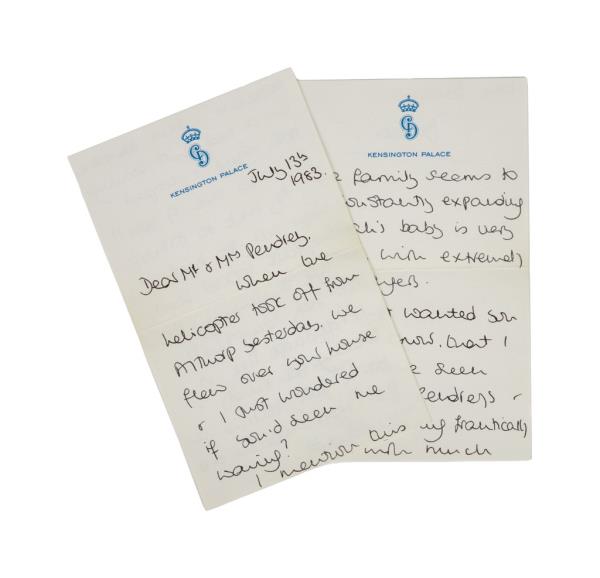 KENSINGTON PALACE
July 13th
1983.
Dear Mr & Mrs Pendrey,
When the
helicopter took off from
Althorp yesterday, we
flew over your house
& I just wondered
if you'd seen me
waving?
I mention this
KENSINGTON PALACE
family seems to
constantly expanding
baby is very
with extremely
wanted you
now, that I
seen
Pendreys -
frantically
with much